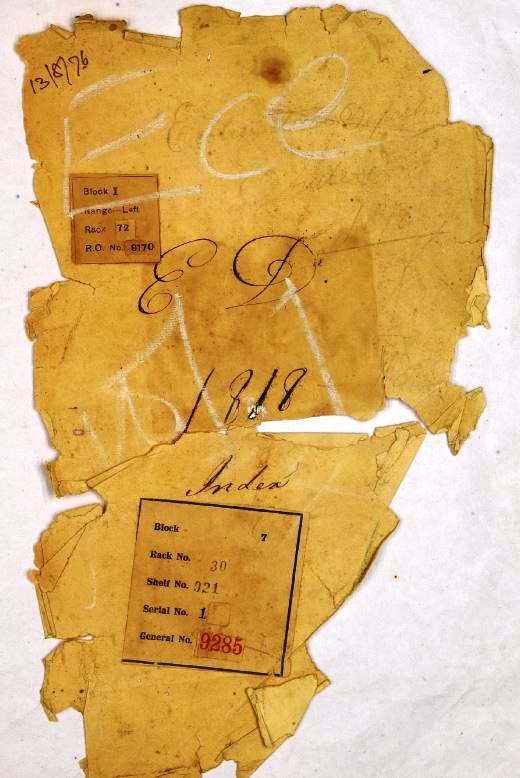 13/8/76
Ecl
Block I
Range Left
Rack 72
R.O. No. 9170
E D
1818
Index
Block 7
Rack No. 30
Shelf No. 921
Serial No. 1
General No. 9285